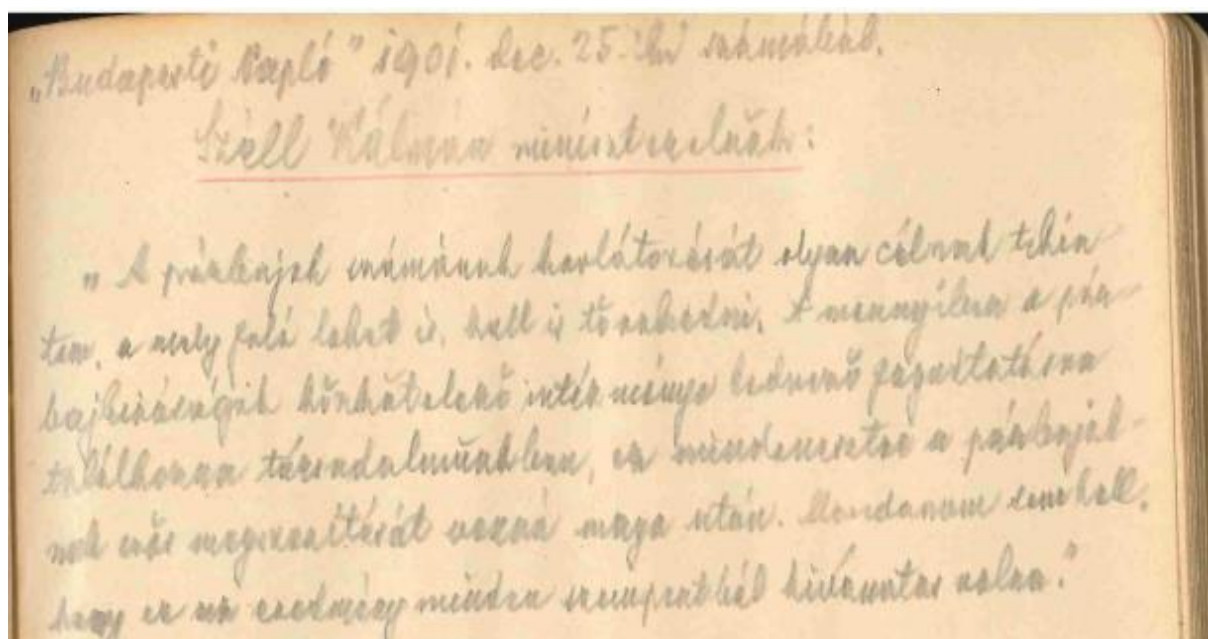 „Budapesti Napló" 1901. dec. 25.-iki számából.
Széll Kálmán miniszterelnök:
„A párbajok számának korlátozását olyan célnak tekin-
tem, a mely felé lehet is, kell is törekedni. A mennyiben a pár-
bajbiróságok közkötelező intézménye kedvező fogadtatásra
találkozna társadalmunkban, ez mindenesetre a párbajok-
nak erős megszorítását vonná maga után. Mondanom sem kell,
hogy ez az eredmény minden szempontból kívánatos volna."